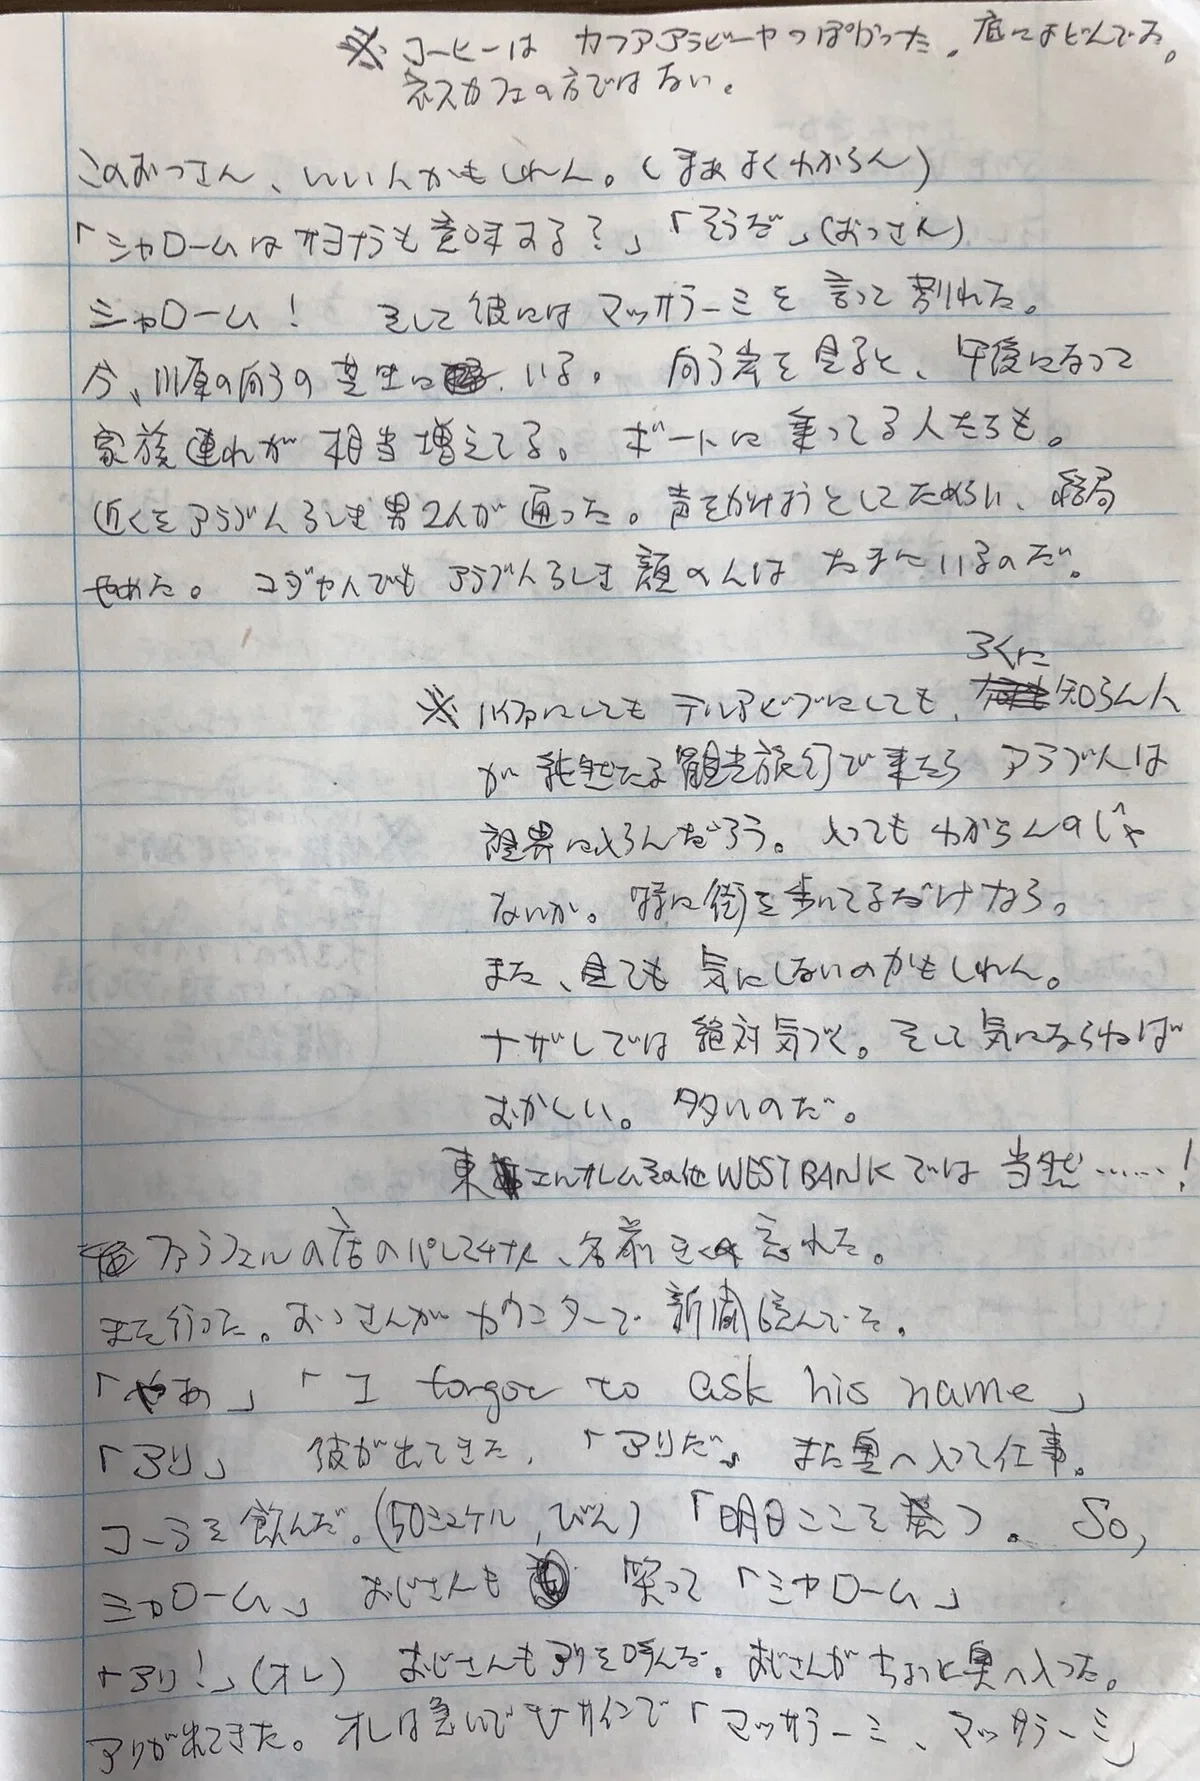 ※ コーヒーは カフアアラビーヤっぽかった。底によどんでた。
ネスカフェの方ではない。
このおっさん、いい人かもしれん。(まあよくわからん)
「シャロームはサヨナラも意味する?」「そうだ」(おっさん)
シャローム! そして彼にはマッサラーミを言って別れた。
今、川原の向うの芝生にいる。 向う岸を見ると、午後になって
家族連れが相当増えてる。ボートに乗ってる人たちも。
近くをアラブ人らしき男2人が通った。声をかけようとしてためらい、結局
やめた。 ユダヤ人でもアラブ人らしき顔の人はたまにいるのだ。
ろくに
※ ハイファにしてもテルアビブにしても、知らん人
が純然たる観光旅行で来たらアラブ人は
視界に入らんだろう。入ってもわからんのじゃ
ないか。特に街を歩いてるだけなら。
また、見ても気にしないのかもしれん。
ナザレでは絶対気づく。そして気にならねば
おかしい。多いのだ。
東エルサレムその他WEST BANKでは当然……!
ファラフェルの店のパレスチナ人、名前きくの忘れた。
また行った。おっさんがカウンターで新聞読んでた。
「やあ」「I forgot to ask his name」
「アリ」 彼が出てきた。「アリだ」。また奥へ入って仕事。
コーラを飲んだ。(50シェケル,びん)「明日ここを発つ。So,
シャローム」 おじさんも 笑って「シャローム」
「アリ!」(オレ) おじさんもアリを呼んだ。おじさんがちょっと奥へ入った。
アリが出てきた。オレは急いでVサインで「マッサラーミ、マッサラーミ」